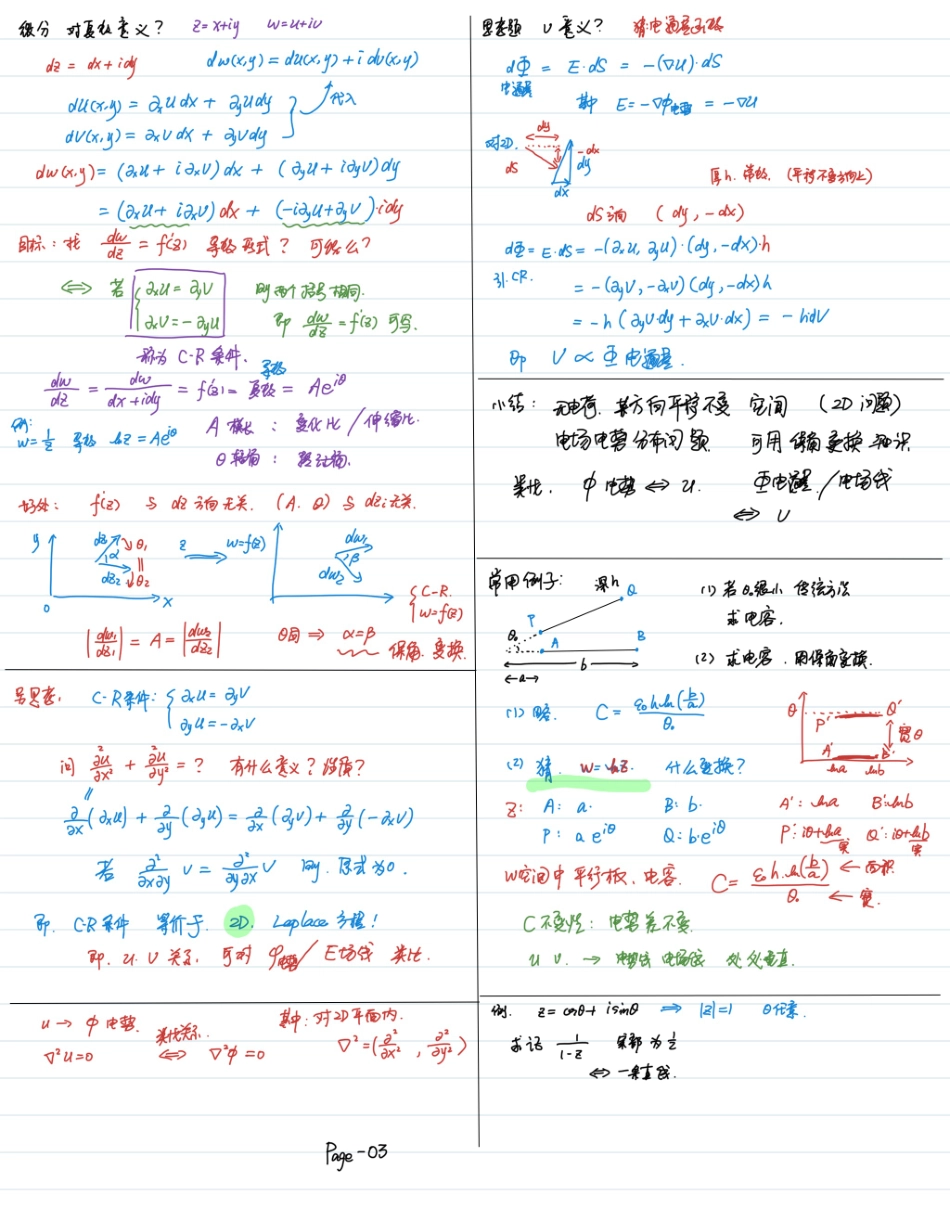 微分 对复数意义? z=x+iy w=u+iv
dz = dx+idy dw(x,y) = du(x,y)+i dv(x,y)
du(x,y) = ∂ₓu dx + ∂ᵧu dy
dv(x,y) = ∂ₓv dx + ∂ᵧv dy 代入
dw(x,y) = (∂ₓu + i∂ₓv)dx + (∂ᵧu + i∂ᵧv)dy
= (∂ₓu + i∂ₓv)dx + (-i∂ᵧu+∂ᵧv)·idy
目标: 找 dw/dz = f'(z) 导数形式? 可能么?
⟺ 若 { ∂ₓu = ∂ᵧv 则两个括号相同.
∂ₓv = -∂ᵧu 即 dw/dz = f'(z) 可写.
称为 C-R 条件.
dw/dz = dw/(dx+idy) = f'(z) = 导数 复数 = Ae^{iθ}
例:
w=1/z 导数 Ae^{iθ} A 模长 : 变化比/伸缩比.
θ 转角 :
好处: f'(z) 与 dz 方向无关. (A. θ) 与 dz: 无关.
y dz₁ θ₁ α dz₂ θ₂ z w=f(z) dw₁ β dw₂
0 x { C-R. w=f(z)
|dw₁/dz₁| = A = |dw₂/dz₂| θ同 ⇒ α=β 保角变换
另思考. C-R条件: { ∂ₓu = ∂ᵧv
∂ᵧu = -∂ₓv
问 ∂²u/∂x² + ∂²u/∂y² = ? 有什么意义?
∂/∂x(∂ₓu) + ∂/∂y(∂ᵧu) = ∂/∂x(∂ᵧv) + ∂/∂y(-∂ₓv)
若 ∂²/∂x∂y v = ∂²/∂y∂x v 则. 原式为0.
即. C-R条件 等价于. 2D. Laplace 方程!
即. u. v 关系, 可对 φ电势/E场线 类比.
u → φ 电势. 类比关系. 其中: 对2D平面内.
∇²u=0 ⟺ ∇²φ=0 ∇²=(∂²/∂x², ∂²/∂y²)
思考题 v 意义? 猜电通量函数
dΦ = E·dS = -(∇u)·dS
电通量
其中 E=-∇φ电势 = -∇u
对2D. dy dS dy -dx dx
厚h. 常数. (平移不变方向上)
dS 方向 (dy, -dx)
dΦ=E·dS=-(∂ₓu, ∂ᵧu)·(dy, -dx)·h
引. CR. = -(∂ᵧv, -∂ₓv)(dy, -dx)h
= -h(∂ᵧv·dy + ∂ₓv·dx) = -hdv
即 v ∝ Φ 电通量.
小结: 无电荷. 某方向平移不变 空间 (2D问题)
电场电势分布问题 可用保角变换知识
类比. φ电势 ⟺ u. Φ电通量/电场线
⟺ v
常用例子: 深h Q
P
θ₀ A B
b
a
(1) 若θ₀很小 传统方法
求电容.
(2) 求电容. 用保角变换.
(1) 略. C = ε₀h ln(b/a)/θ₀
θ P' Q' 宽θ
A' B'
lna lnb
(2) 猜. w=lnz. 什么变换?
z: A: a. B: b. A': lna B': lnb
P: a e^{iθ} Q: b·e^{iθ} P': iθ+lna 实 Q': iθ+lnb 实
w空间中 平行板. 电容. C= ε₀h·ln(b/a)/θ₀ ← 面积 ← 宽.
C不变性: 电势差不变.
u v. → 电势线 电场线 处处垂直.
例. z = cosθ + isinθ ⇒ |z|=1 θ任意.
求证 1/(1-z) 实部为 1/2
⟺ 一条直线.
Page-03